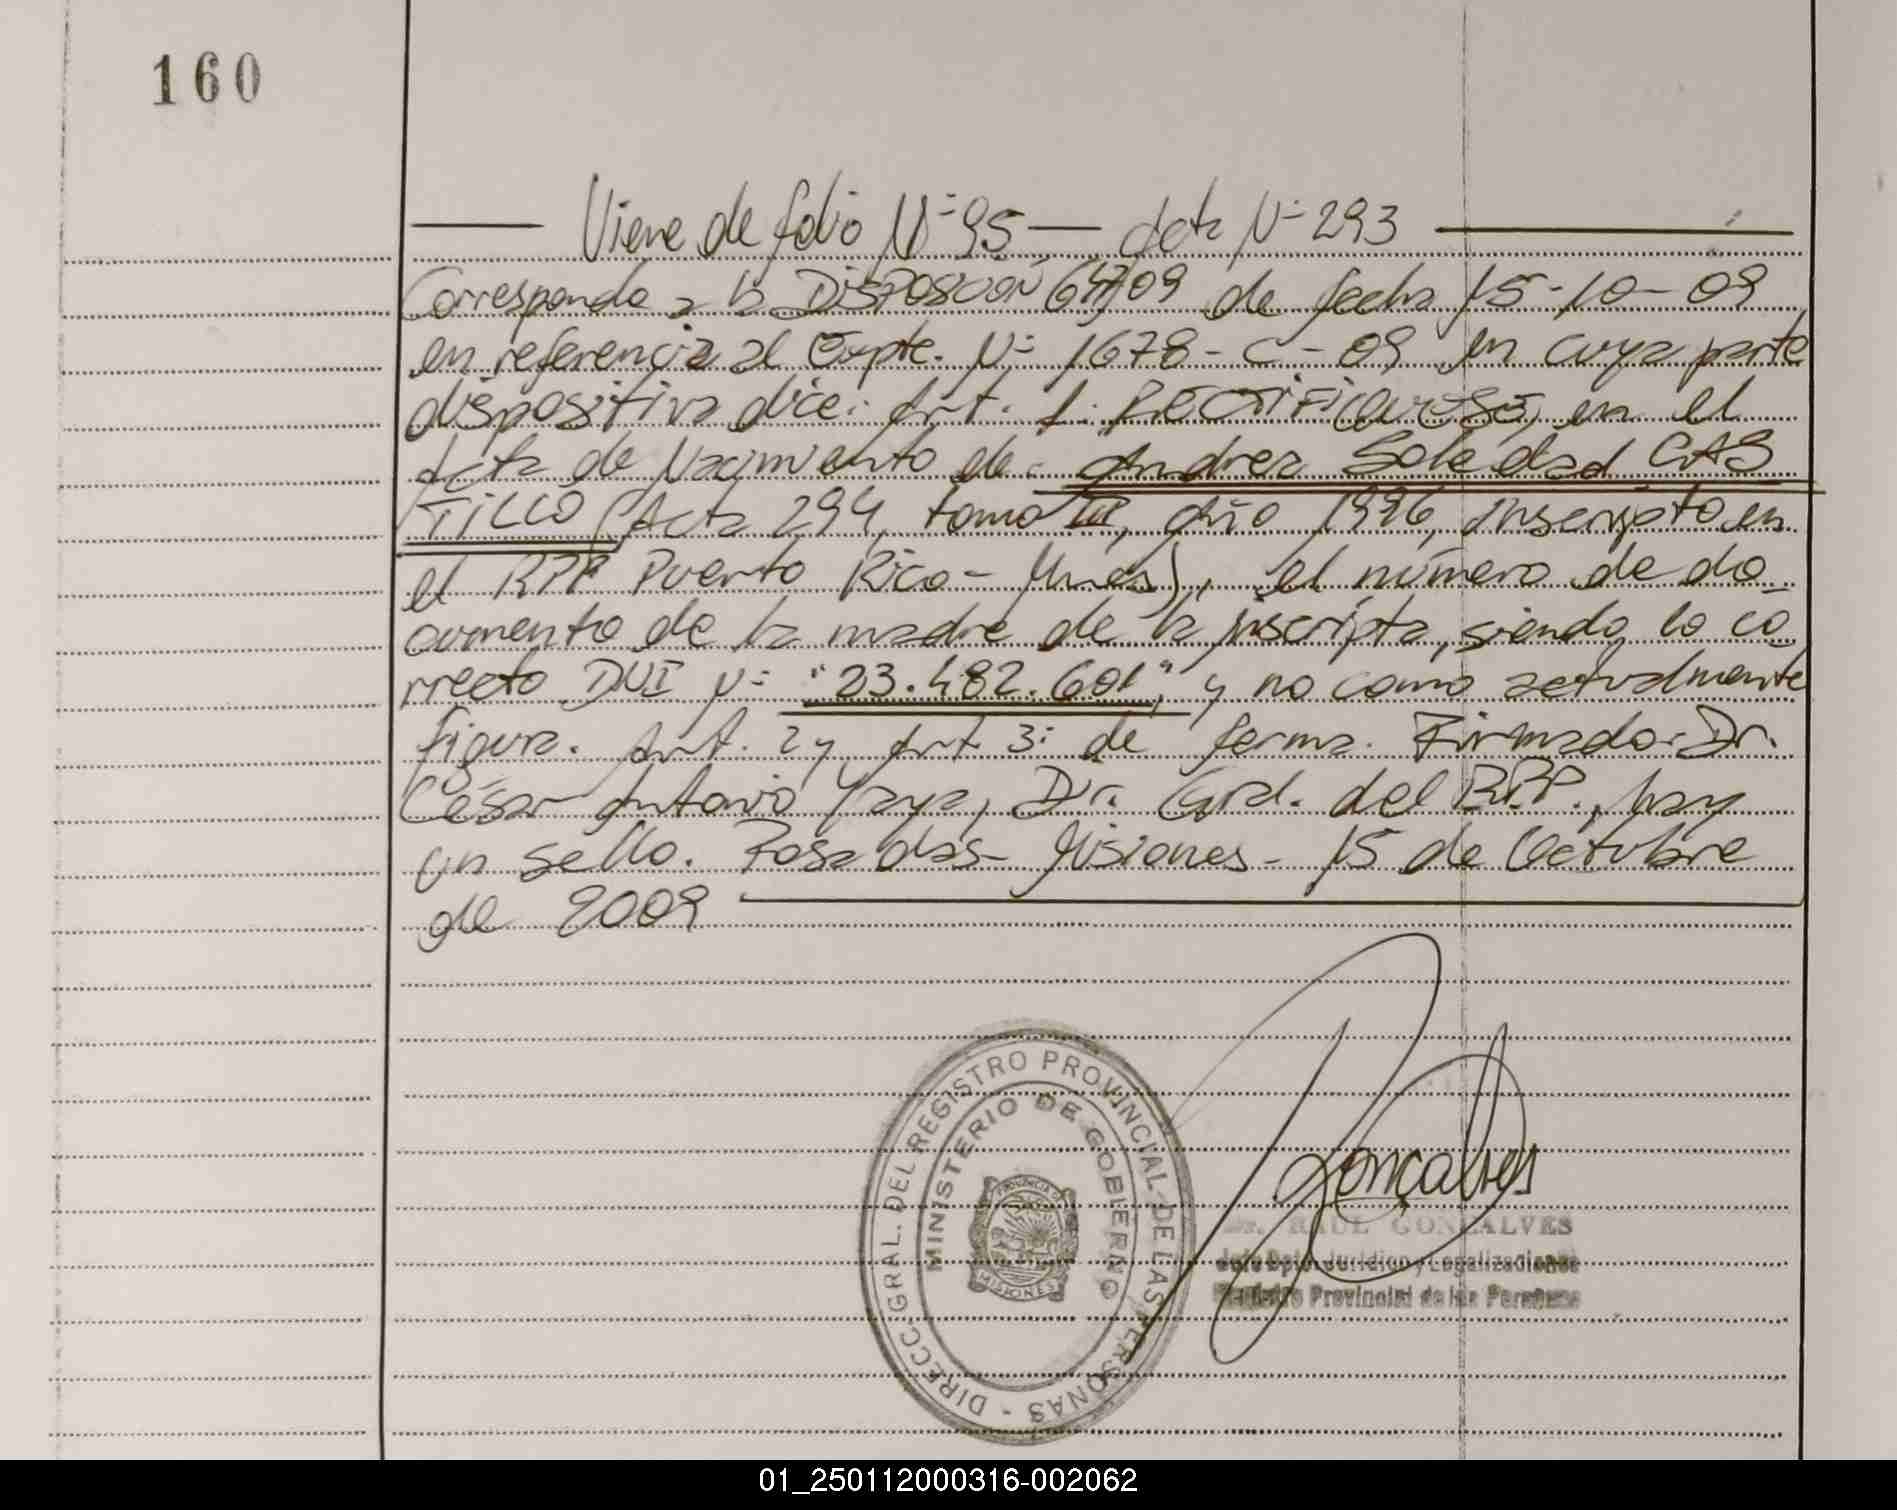 160
Viene de folio Nº 95 — Acta Nº 293
Corresponde a la DISPOSICIÓN 6477/09 de fecha 15-10-09
en referencia al Expte. Nº 1678-C-09 en cuya parte
dispositiva dice: Art. 1: RECTIFIQUESE, en el
Acta de Nacimiento de: Andrea Soledad CAS
TILLO (Acta 294, tomo III, año 1996, inscripto en
el RPP Puerto Rico - Mnes), el número de do
cumento de la madre de la inscripta, siendo lo co
rrecto DNI Nº "23.482.601", y no como actualmente
figura. Art. 2 y Art. 3: de forma. Firmado: Dr.
César Antonio Yaya, Dir. Gral. del R.P.P., hay
un sello. Posadas - Misiones - 15 de Octubre
de 2009
DIRECC. GRAL. DEL REGISTRO PROVINCIAL DE LAS PERSONAS -
MINISTERIO DE GOBIERNO
PROVINCIA DE
MISIONES
Gonçalves
Dr. RAUL GONCALVES
Jefe Dpto. Jurídico y Legalizaciones
Registro Provincial de las Personas
01_250112000316-002062